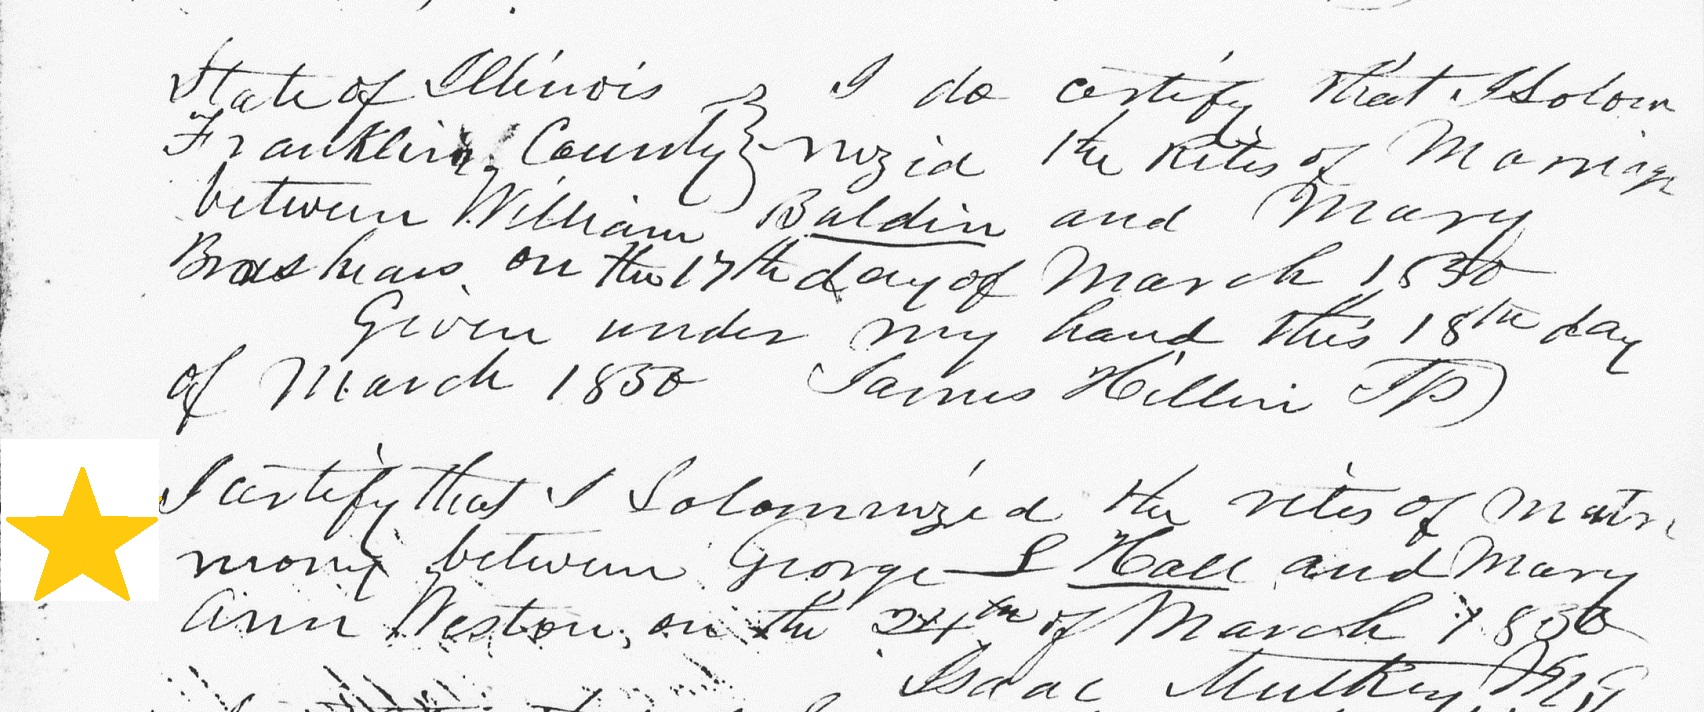 State of Illinois } I do certify that I Solom
Franklin County } nized the Rites of Marriage
between William Baldin and Mary
Brashears on the 17th day of March 1850
Given under my hand this 18th day
of March 1850 James Hillin JP)
I certify that I Solomnized the rites of Matri
mony between George S Hall and Mary
Ann Weston, on the 24th of March 1850
Isaac Mulkey MG